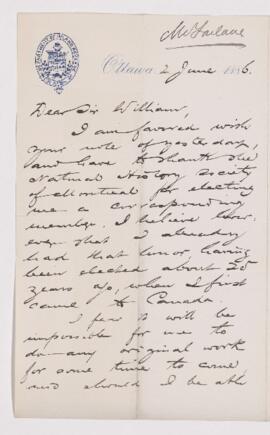 McFarlane
Ottawa 2 June 1886.
Dear Sir William,
I am favored with
your note of yesterday,
and have to thank the
Natural History Society
of Montreal for electing
me a corresponding
member. I believe how-
ever that I already
had that honor having
been elected about 25
years ago, when I first
came to Canada.
I fear it will be
impossible for me to
do any original work
for some time to come
and should I be able